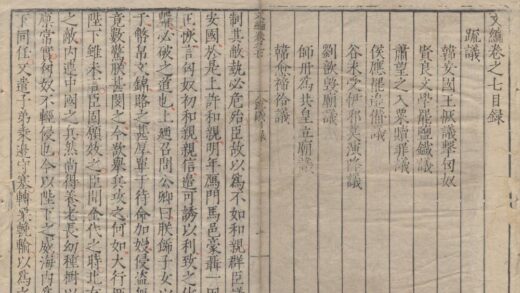 文編卷之七目録
疏議
韓安國王恢議擊匈奴
賢良文學罷鹽鐵議
蕭望之入粟贖罪議
侯應罷邊備議
谷永受伊邪莫演降議
劉歆毀廟議
師丹共皇立廟議
韓愈禘祫議
制其敝執必危殆臣故以為不如和親群臣議
安國於是上許和親明年鴈門馬邑豪聶一因
王恢言匈奴初和親親信邊可誘以利致之伏
擊必破之道也上廼召問公卿曰朕飾子女以
于幣帛文錦賂之甚厚單于待命加嫚侵盜無
竟數驚朕甚閔之今欲舉兵攻之何如大行恢
陛下雖未言臣固願效之臣聞全代之時北有
之敵内連中國之兵然尚得養老長幼種樹以
廩常實匈奴不輕侵也今以陛下之威海内為
下同任又遣子弟乘邊守塞轉粟輓輸以為之